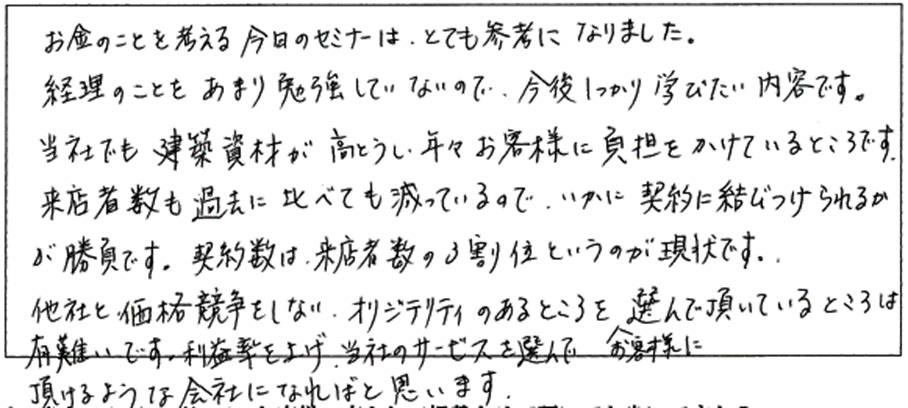 お金のことを考える今日のセミナーは、とても参考になりました。
経理のことをあまり勉強していないので、今後しっかり学びたい内容です。
当社でも建築資材が高とうし、年々お客様に負担をかけているところです。
来店者数も過去に比べても減っているので、いかに契約に結びつけられるか
が勝負です。契約数は、来店者数の3割位というのが現状です。
他社と価格競争をしない、オリジテリティのあるところを選んで頂いているところは
有難いです。利益率を上げ、当社のサービスを選んで お客様に
頂けるような会社になればと思います。